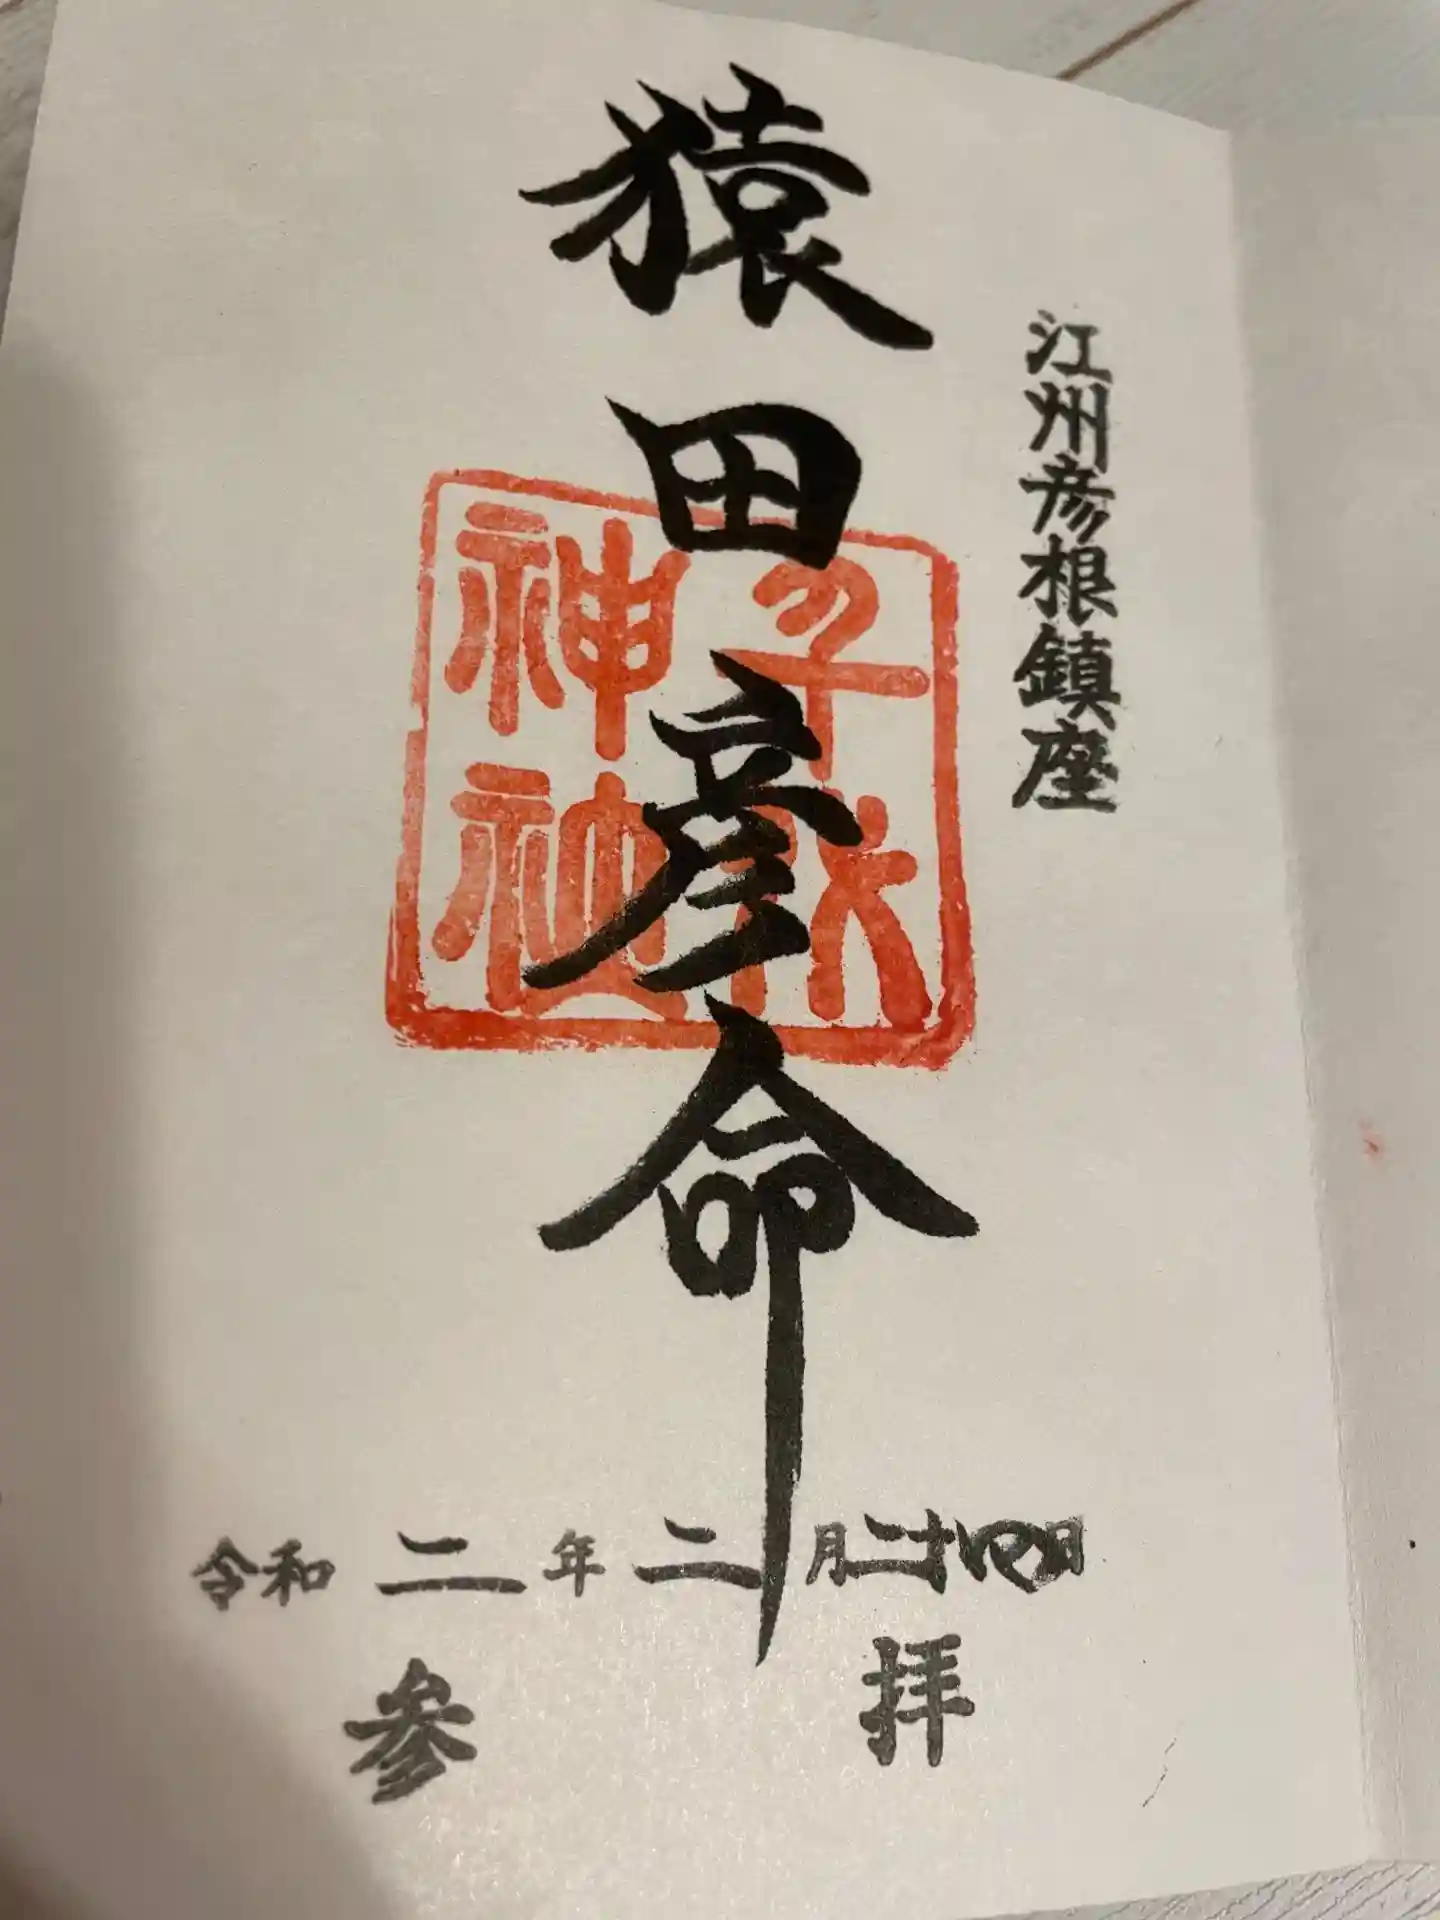 江州彦根鎮座
猿田彦命
令和二年二月二十四日
参拝